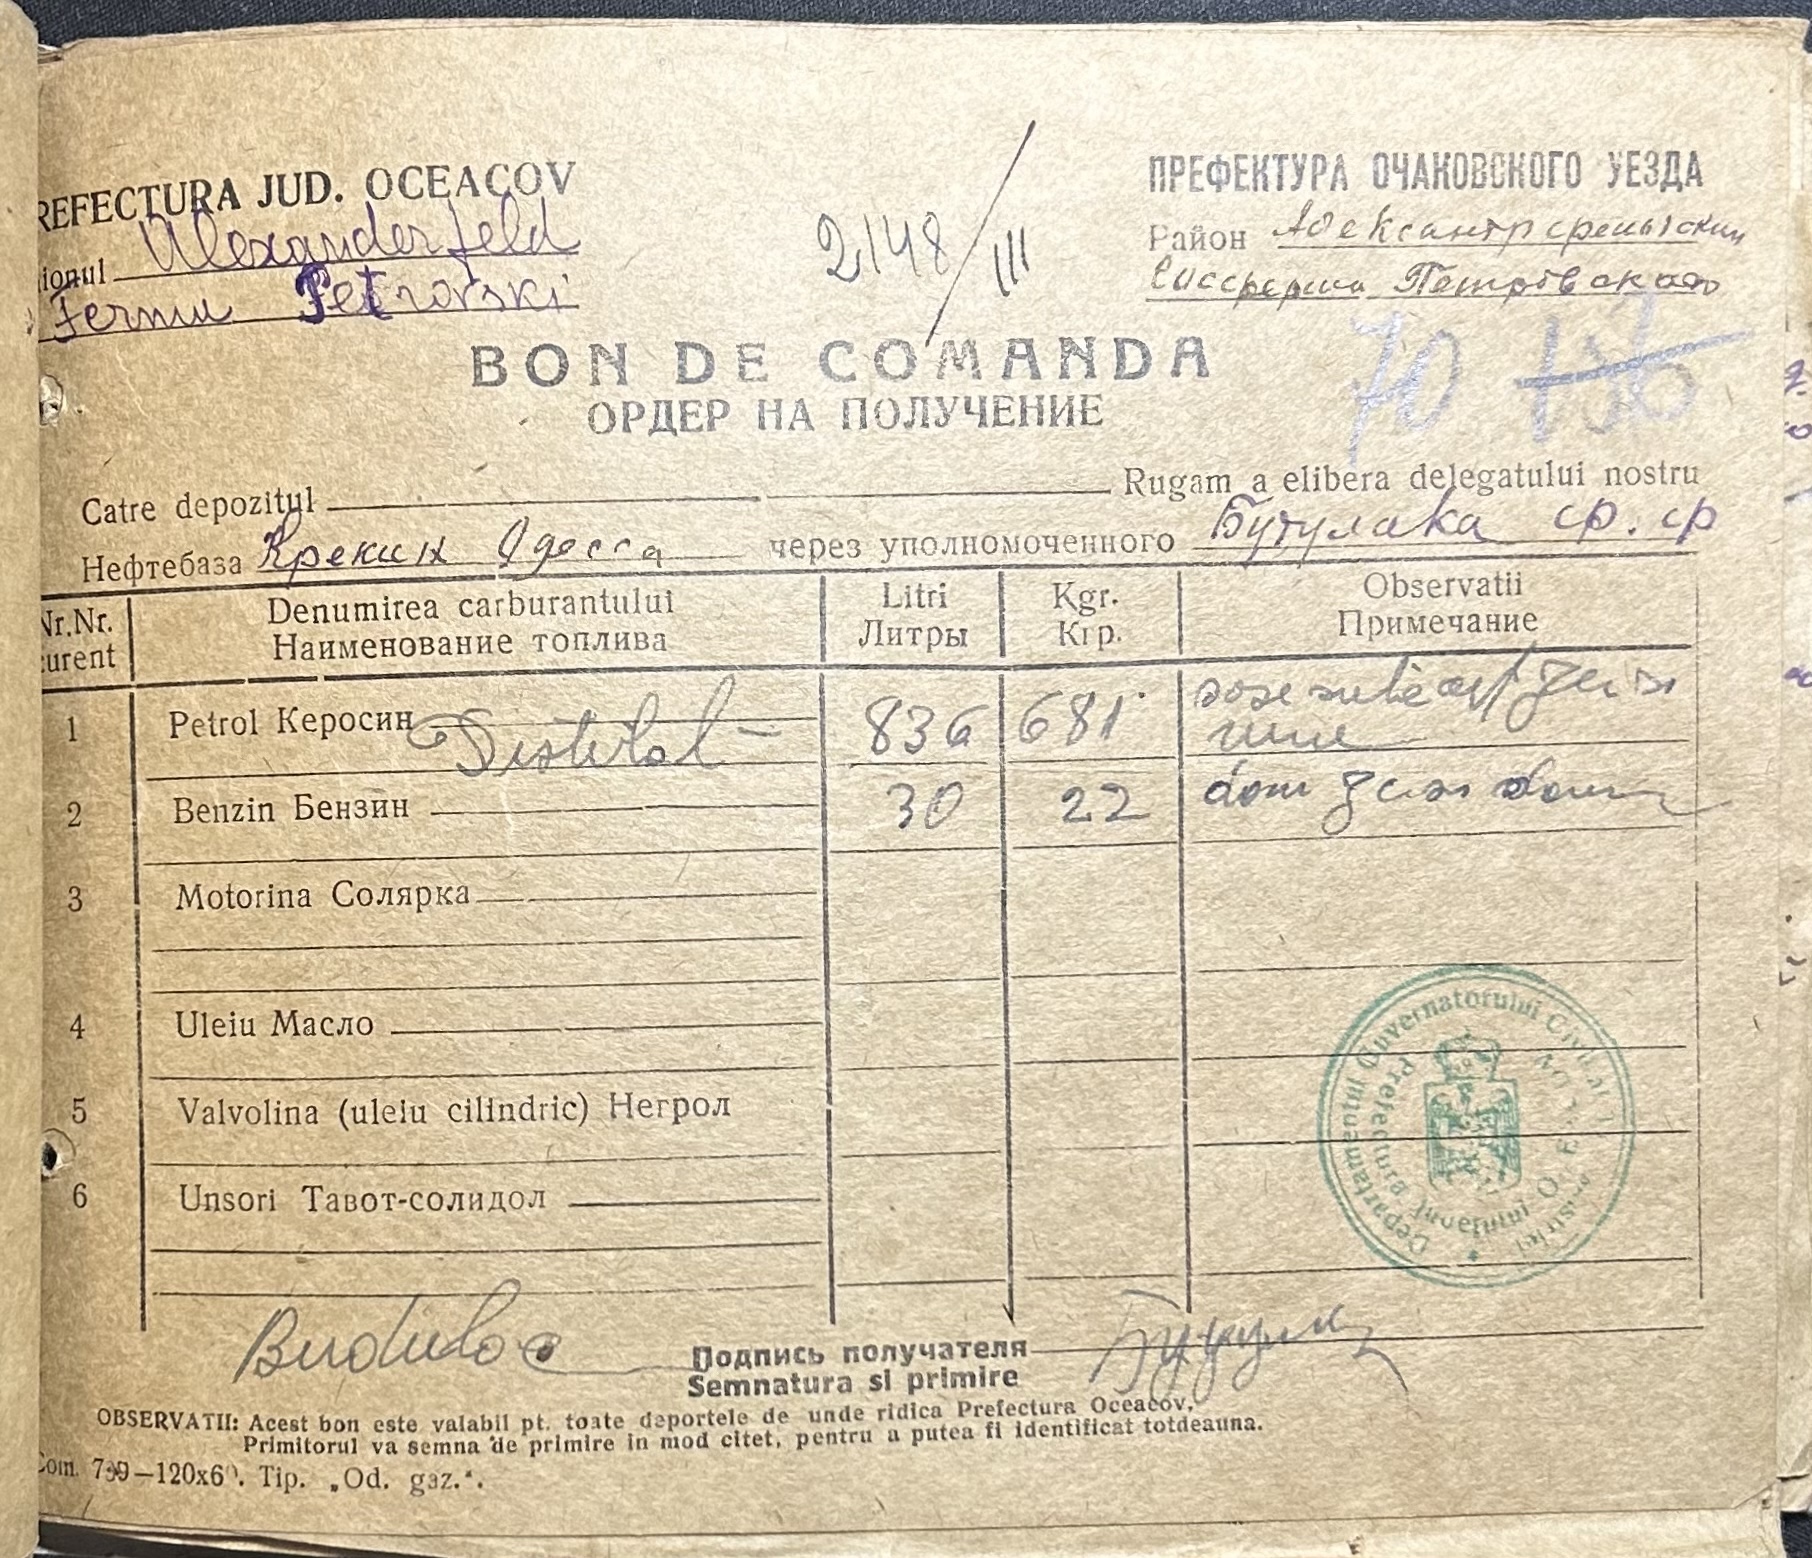 REFECTURA JUD. OCEACOV
ПРЕФЕКТУРА ОЧАКОВСКОГО УЕЗДА
ionul Alexanderfeld
Район
Fermu Petrovski
Петровского
2148/III
BON DE COMANDA
ОРДЕР НА ПОЛУЧЕНИЕ
70 136
Catre depozitul Rugam a elibera delegatului nostru
Нефтебаза Крекинг Одесса через уполномоченного Бутулака
Nr.Nr. curent Denumirea carburantului Litri Kgr. Observatii
Наименование топлива Литры Кгр. Примечание
1 Petrol Керосин Distilat 836 681
2 Benzin Бензин 30 22
3 Motorina Солярка
4 Uleiu Масло
5 Valvolina (uleiu cilindric) Негрол
6 Unsori Тавот-солидол
Departamentul Guvernatorului Civil al Transnistriei
Prefectura Județului
Подпись получателя
Semnatura si primire
OBSERVATII: Acest bon este valabil pt. toate deportele de unde ridica Prefectura Oceacov,
Primitorul va semna de primire in mod citet, pentru a putea fi identificat totdeauna.
Com. 799—120x60. Tip. „Od. gaz.".